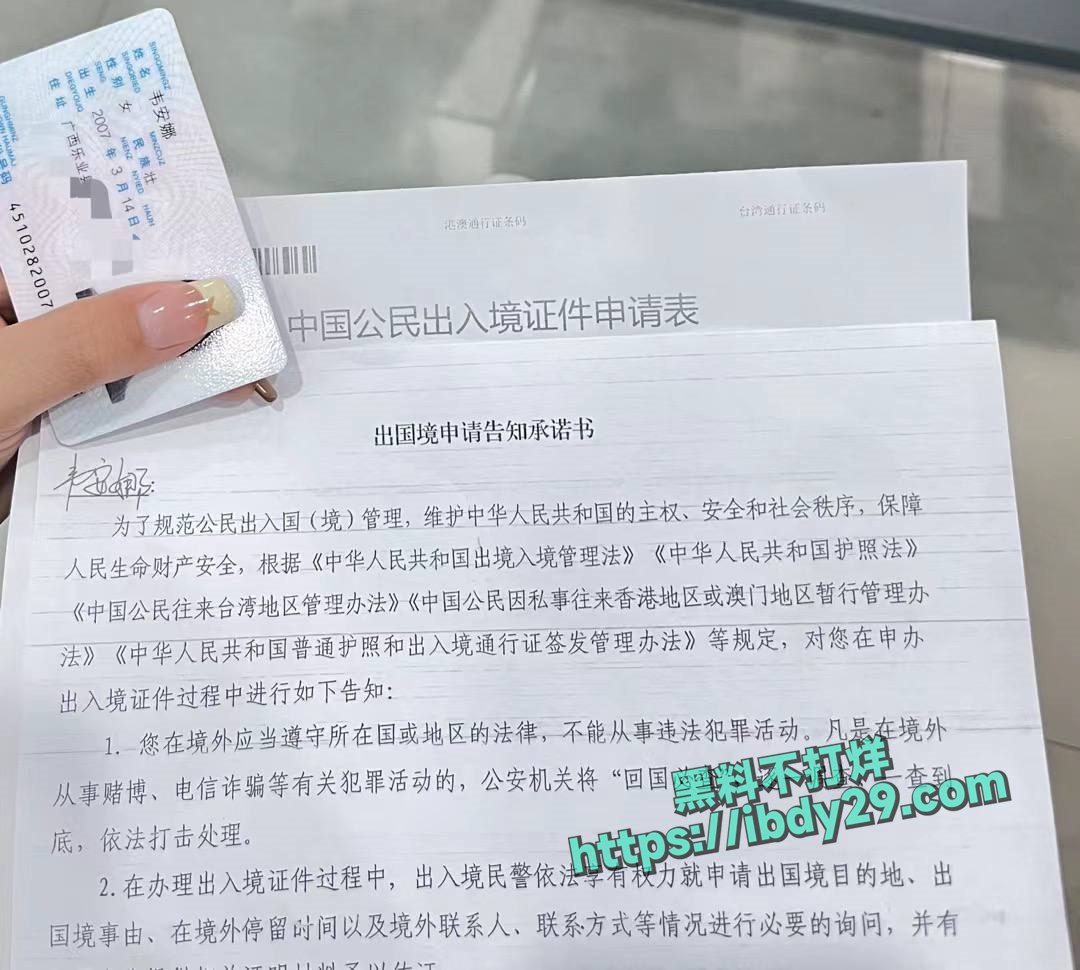 SINGQMINGZ
姓名 韦安娜
SINGQBIED MINZCUZ
性别 女 民族 壮
SENG NIENZ NYIED HAUH
出生 2007年3月14日
DIEGYOUQ
住址 广西乐业县
号码 4510282007
港澳通行证条码
台湾通行证条码
中国公民出入境证件申请表
出国境申请告知承诺书
韦安娜:
为了规范公民出入国(境)管理,维护中华人民共和国的主权、安全和社会秩序,保障
人民生命财产安全,根据《中华人民共和国出境入境管理法》《中华人民共和国护照法》
《中国公民往来台湾地区管理办法》《中国公民因私事往来香港地区或澳门地区暂行管理办
法》《中华人民共和国普通护照和出入境通行证签发管理办法》等规定,对您在申办
出入境证件过程中进行如下告知:
1. 您在境外应当遵守所在国或地区的法律,不能从事违法犯罪活动。凡是在境外
从事赌博、电信诈骗等有关犯罪活动的,公安机关将“回国 一查到
底,依法打击处理。
黑料不打烊
https://ibdy29.com
2.在办理出入境证件过程中,出入境民警依法享有权力就申请出国境目的地、出
国境事由、在境外停留时间以及境外联系人、联系方式等情况进行必要的询问,并有